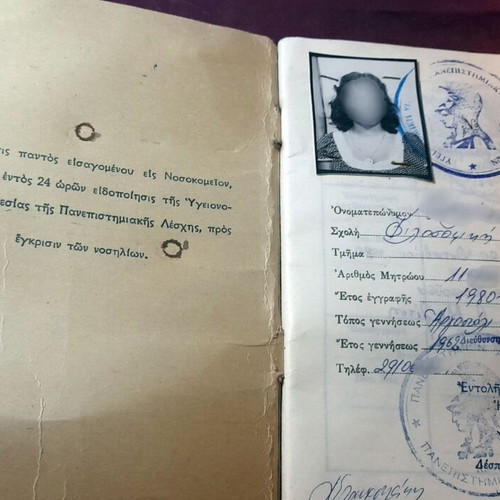 παντὸς εἰσαγομένου εἰς Νοσοκομεῖον,
ἐντὸς 24 ὡρῶν εἰδοποίησις τῆς Ὑγειονο-
εσίας τῆς Πανεπιστημιακῆς Λέσχης, πρὸς
ἔγκρισιν τῶν νοσηλίων.
Ὀνοματεπώνυμον
Σχολή Φιλοσοφική
Τμῆμα
Ἀριθμὸς Μητρώου 11
Ἔτος ἐγγραφῆς 1980
Τόπος γεννήσεως
Ἔτος γεννήσεως 1962
Τηλέφ. 29/0
Ἐντολῇ
ΠΑΝΕΠΙΣΤΗΜΙ